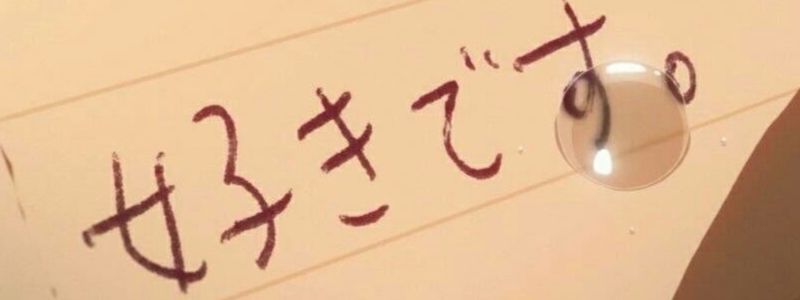 好きです。